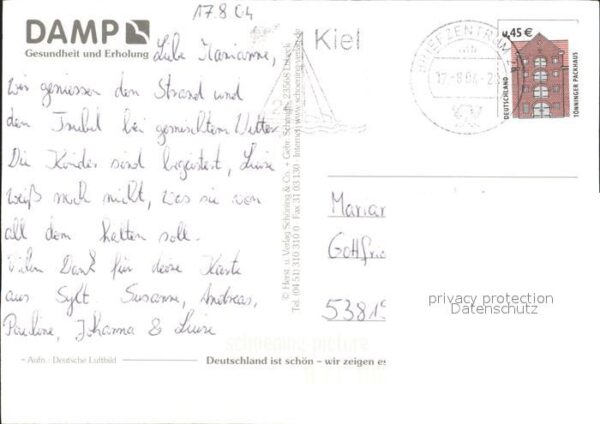 17.8.04
DAMP
Gesundheit und Erholung
Liebe Marianne,
wir geniessen den Strand und
den Trubel bei gemischtem Wetter.
Die Kinder sind begeistert, Luise
weiß noch nicht, was sie von
all dem halten soll.
Vielen Dank für deine Karte
aus Sylt. Susanne, Andreas,
Pauline, Johanna & Luise
Aufn.: Deutsche Luftbild
Deutschland ist schön – wir zeigen es
© Herst. u. Verlag Schöning & Co. + Gebr. Schmidt, 23568 Lübeck
Tel. (04 51) 310 310 0 · Fax 31 03 130 · Internet: www.schoening-verlag.de
Kiel
BRIEFZENTRUM
17.-8.04-20
24
0,45 €
DEUTSCHLAND
TÖNNINGER PACKHAUS
Marian
Gottfrie
53819
privacy protection
Datenschutz